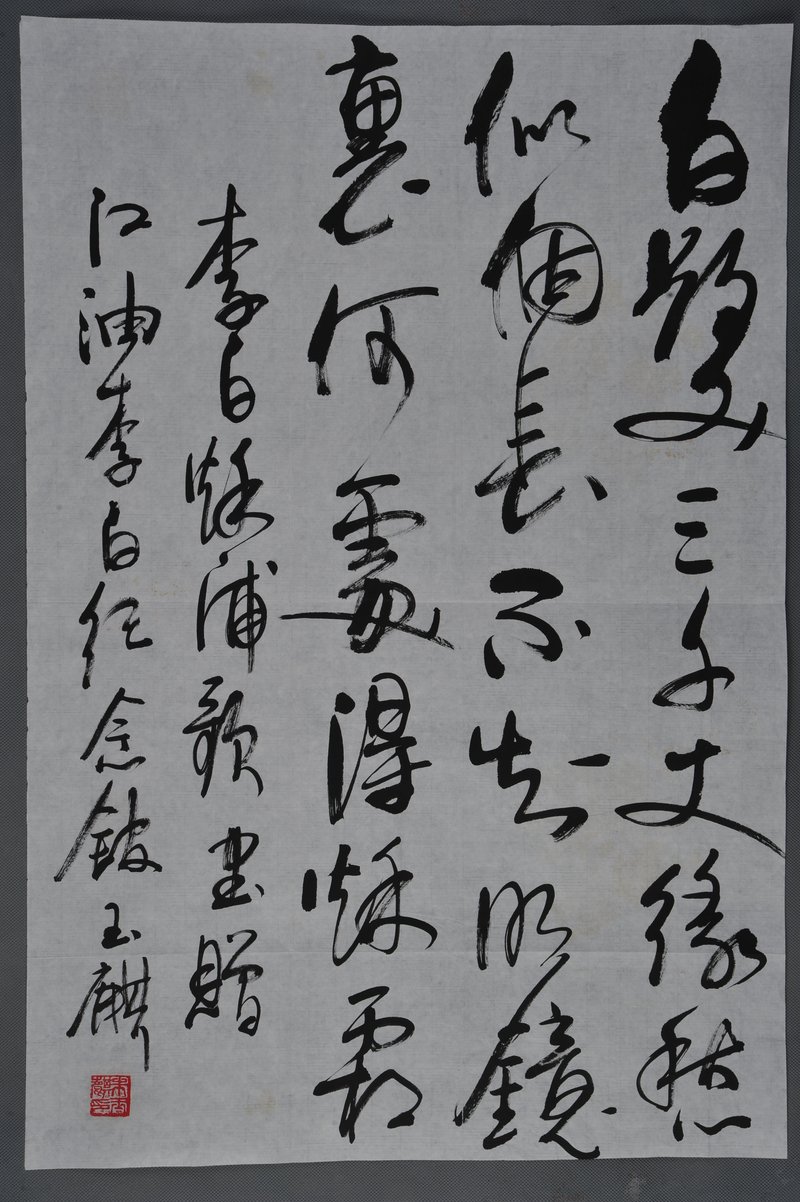 白髮三千丈緣愁
似個長不知明鏡
裏何處得秋霜
李白秋浦歌書贈
江油李白紀念館玉麒